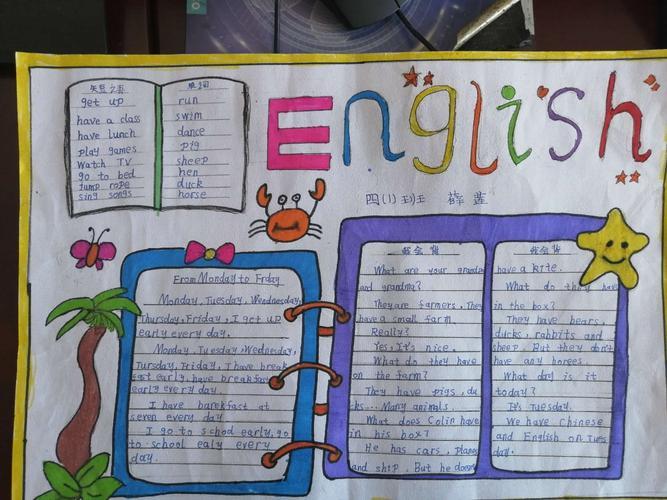 English
get up
have a class
have lunch
play games
watch TV
go to bed
jump rope
sing songs
单词
run
swim
dance
pig
sheep
hen
duck
horse
四(1)班
From Monday to Friday
Monday, Tuesday, Wednesday,
Thursday, Friday, I get up
early every day.
Monday, Tuesday, Wednesday,
Tursday, Friday, I have break
fast early, have breakfast
early every day.
I have barekfast at
seven every day
I go to schod early, go
to school ealy every
day.
我会背
What are your grandpa
and grandma?
They are farmers, They
have a small farm
Really?
Yes, It's nice.
What do they have
on the farm?
They have pigs, du
cks... Many animals.
What does Colin have
in his box?
He has cars, planes
and ship. But he doesn't
我会背
have a kite.
What do they have
in the box?
They have bears,
ducks, rabbits and
sheep. But they don't
have any horees.
What day is it
today?
It's Tuesday.
We have Chinese
and English on Tues
day.